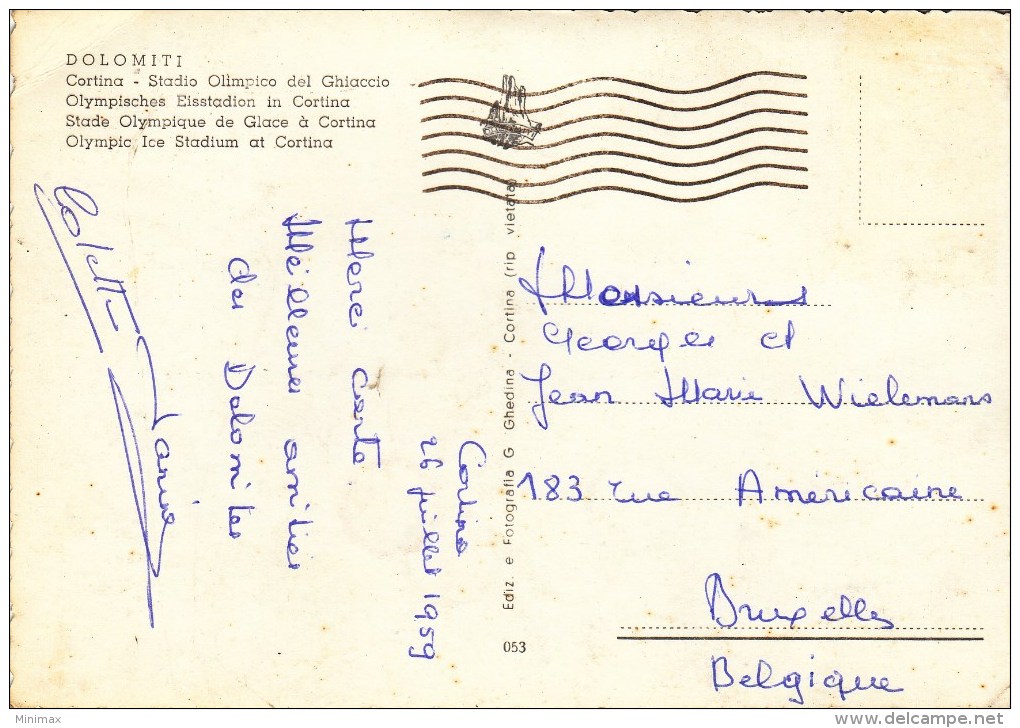 DOLOMITI
Cortina - Stadio Olimpico del Ghiaccio
Olympisches Eisstadion in Cortina
Stade Olympique de Glace à Cortina
Olympic Ice Stadium at Cortina
Cortina
26 juillet 1959
Merci carte
Meilleures amitiés
des Dolomites
Colette
Ediz. e Fotografia G Ghedina - Cortina (rip vietata)
053
Messieurs
Georges et
Jean Marie Wielemans
183 rue Américaine
Bruxelles
Belgique
Minimax
delcampe.net